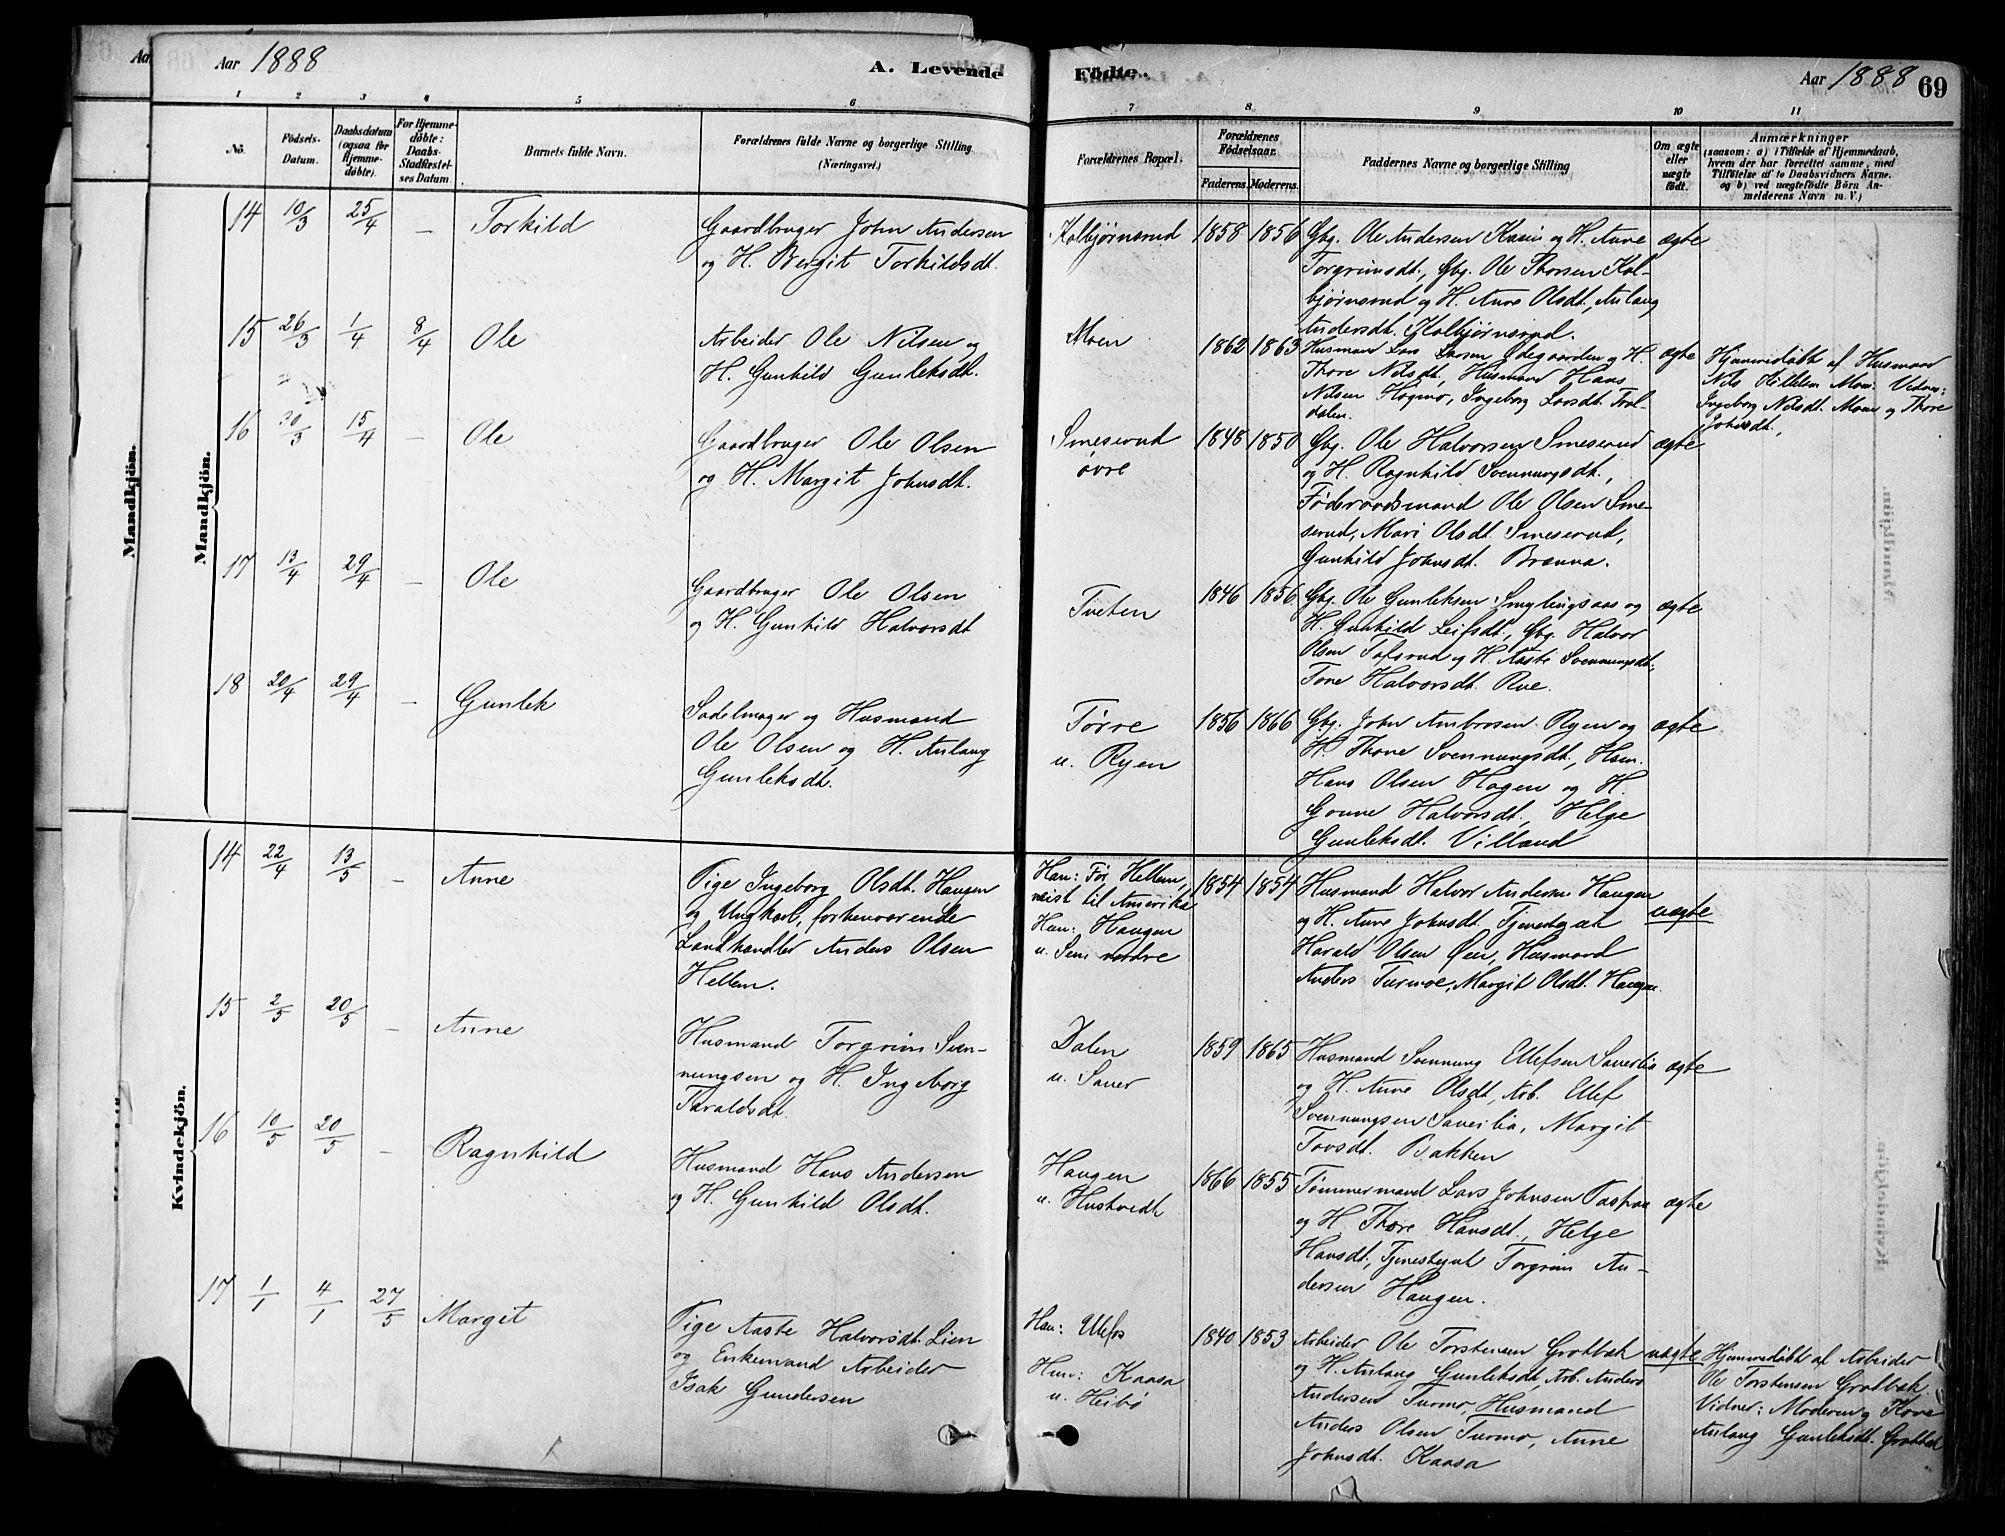 Aar 1888
A. Levende
Fødte.
Aar 1888
69
1 2 3 4 5 6 7 8 9 10 11
No.
Fødsels-
Datum.
Daabsdatum
(ogsaa for
Hjemme-
døbte).
For Hjemme-
døbte:
Daabs-
Stadfæstel-
ses Datum.
Barnets fulde Navn.
Forældrenes fulde Navne og borgerlige Stilling
(Næringsvei.)
Forældrenes Bopæl.
Forældrenes
Fødselsaar.
Faderens. Moderens.
Faddernes Navne og borgerlige Stilling
Om ægte
eller
uægte
født.
Anmærkninger
(saasom: a) i Tilfælde af Hjemmedaab,
hvem der har forrettet samme, med
Tilføielse af to Daabsvidners Navne,
og b) ved uægtefødte Børn An-
melderens Navn m. V.)
Mandkjön.
Mandkjön.
14 10/3 25/4 – Torkild
Gaardbruger John Andersen
og H. Bergit Torkildsdt.
Kolbjørnsrud
1858 1856
Gbg. Ole Andersen Kasin og H. Anne
Torgrimsdt., Gbg. Ole Thorsen Kol-
bjørnsrud og H. Anne Olsdt., Anlaug
Andersdt. Kolbjørnsrud.
ægte
15 26/3 1/4 8/4 Ole
Arbeider Ole Nilsen og
H. Gunhild Gunleksdt.
Moen
1862 1863
Husmand Lars Larsen Ødegaarden og H.
Thore Nilsdt., Husmand Hans
Nilsen Høgmo, Ingeborg Larsdt. Trol-
dalen.
ægte
Hjemmedøbt af Husmand
Nils Moen. Vidner:
Ingeborg Nilsdt. Moen og Thore
Johnsdt.
16 30/3 15/4 – Ole
Gaardbruger Ole Olsen
og H. Margit Johnsdt.
Smeserud
øvre
1848 1850
Gbg. Ole Halvorsen Smeserud
og H. Ragnhild Svennungsdt.,
Føderaadsmand Ole Olsen Sme-
serud, Mari Olsdt. Smeserud,
Gunhild Johnsdt. Brænna.
ægte
17 13/4 29/4 – Ole
Gaardbruger Ole Olsen
og H. Gunhild Halvorsdt
Tveten
1846 1856
Gbg. Ole Gunleksen Smylingsaas og
H. Gunhild Leifsdt., Gbg. Halvor
Olsen Tofsrud og H. Aaste Svennungsdt.
Tone Halvorsdt. Rue.
ægte
18 20/4 29/4 – Gunlek
Sadelmager og Husmand
Ole Olsen og H. Anlaug
Gunleksdt.
Tørre
u. Ryen
1856 1866
Gbg. John Ambrosen Ryen og
H. Thone Svennungsdt., Hsm.
Hans Olsen Hagen og H.
Gonne Halvorsdt., Helge
Gunleksdt. Villand
ægte
Kvindekjön.
14 22/4 13/5 – Anne
Pige Ingeborg Olsdt. Haugen
og Ungkarl, forhenværende
Landhandler Anders Olsen
Hellem.
Han: Før Hellem,
reist til Amerika
Hun: Haugen
u. Sem nordre
1854 1854
Husmand Halvor Andersen Haugen
og H. Anne Johnsdt. Tjenestegut
Harald Olsen Øen, Husmand
Anders Turmoe, Margit Olsdt. Haugen.
uægte
15 2/5 20/5 – Anne
Husmand Torgrim Sven-
nungsen og H. Ingeborg
Taraldsdt.
Dalen
u. Sauer
1859 1865
Husmand Svennung Ellefsen Sauerlia
og H. Anne Olsdt., Arb. Ellef
Svennungsen Sauerlia, Margit
Tovsdt. Bakken
ægte
16 10/5 20/5 – Ragnhild
Husmand Hans Andersen
og H. Gunhild Olsdt.
Haugen
u. Hustvedt
1866 1855
Tømmermand Lars Johnsen
og H. Thore Hansdt., Helge
Hansdt., Tjenestegut Torgrim An-
dersen Haugen.
ægte
17 1/1 4/1 27/5 Margit
Pige Aaste Halvorsdt. Lien
og Enkemand Arbeider
Isak Gundersen
Han: Ulefos
Hun: Kaasa
u. Heibø
1840 1853
Arbeider Ole Torstensen Grotbæk
og H. Anlaug Gunleksdt., Arb. Anders
Andersen Turmo, Husmand
Anders Olsen Turmo, Anne
Johnsdt. Kaasa
uægte
Hjemmedøbt af Arbeider
Ole Torstensen Grotbæk.
Vidner: Moderen og Kone
Anlaug Gunleksdt. Grotbæk